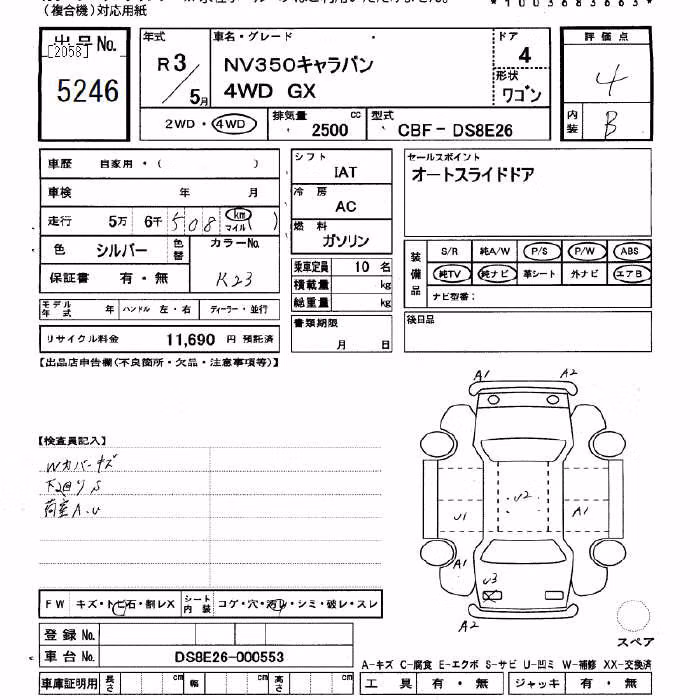 (複合機)対応用紙
*1003683663*
出品No.
[2058]
5246
年式
R3/5月
車名・グレード
NV350キャラバン
4WD GX
ドア
4
形状
ワゴン
評価点
4
内装
B
2WD・4WD
排気量 2500 cc
型式 CBF-DS8E26
車歴 自家用・( )
車検 年 月
走行 5万 6千 508 km マイル ( )
色 シルバー 色替 カラーNo. K23
保証書 有・無
モデル年式 年 ハンドル 左・右 ディーラー・並行
リサイクル料金 11,690 円 預託済
シフト
IAT
冷房
AC
燃料
ガソリン
乗車定員 10 名
積載量 kg
総重量 kg
書類期限
月 日
セールスポイント
オートスライドドア
装備品
S/R 純A/W P/S P/W ABS
純TV 純ナビ 革シート 外ナビ エアB
ナビ型番:
後日品
【出品店申告欄(不良箇所・欠品・注意事項等)】
【検査員記入】
Wカバーキズ
下回りS
荷室A.U
A1 A2
U2
U1 A1 A1
U3
A2
FW キズ・トビ石・割レX シート内装 コゲ・穴・汚レ・シミ・破レ・スレ
登録No.
車台No. DS8E26-000553
車庫証明用 長さ cm 幅 cm 高さ cm
スペア
A-キズ C-腐食 E-エクボ S-サビ U-凹ミ W-補修 XX-交換済
工具 有・無 ジャッキ 有・無